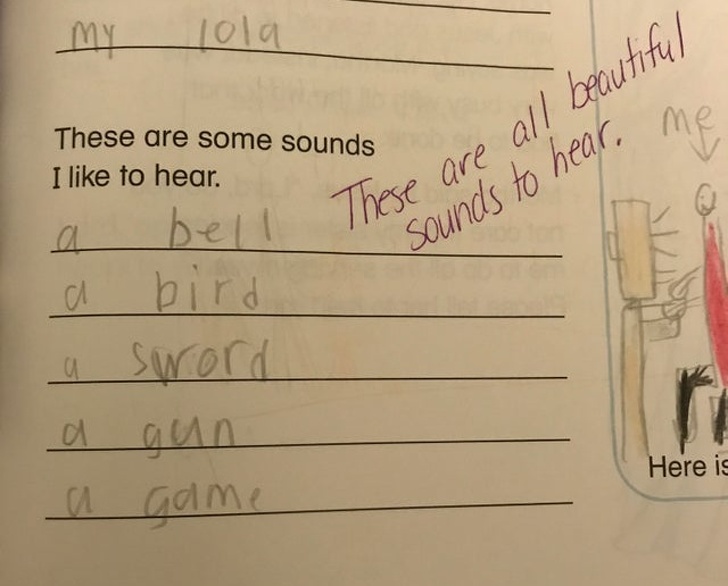 my lola
These are some sounds
I like to hear.
These are all beautiful
sounds to hear.
a bell
a bird
a sword
a gun
a game
me
Here is